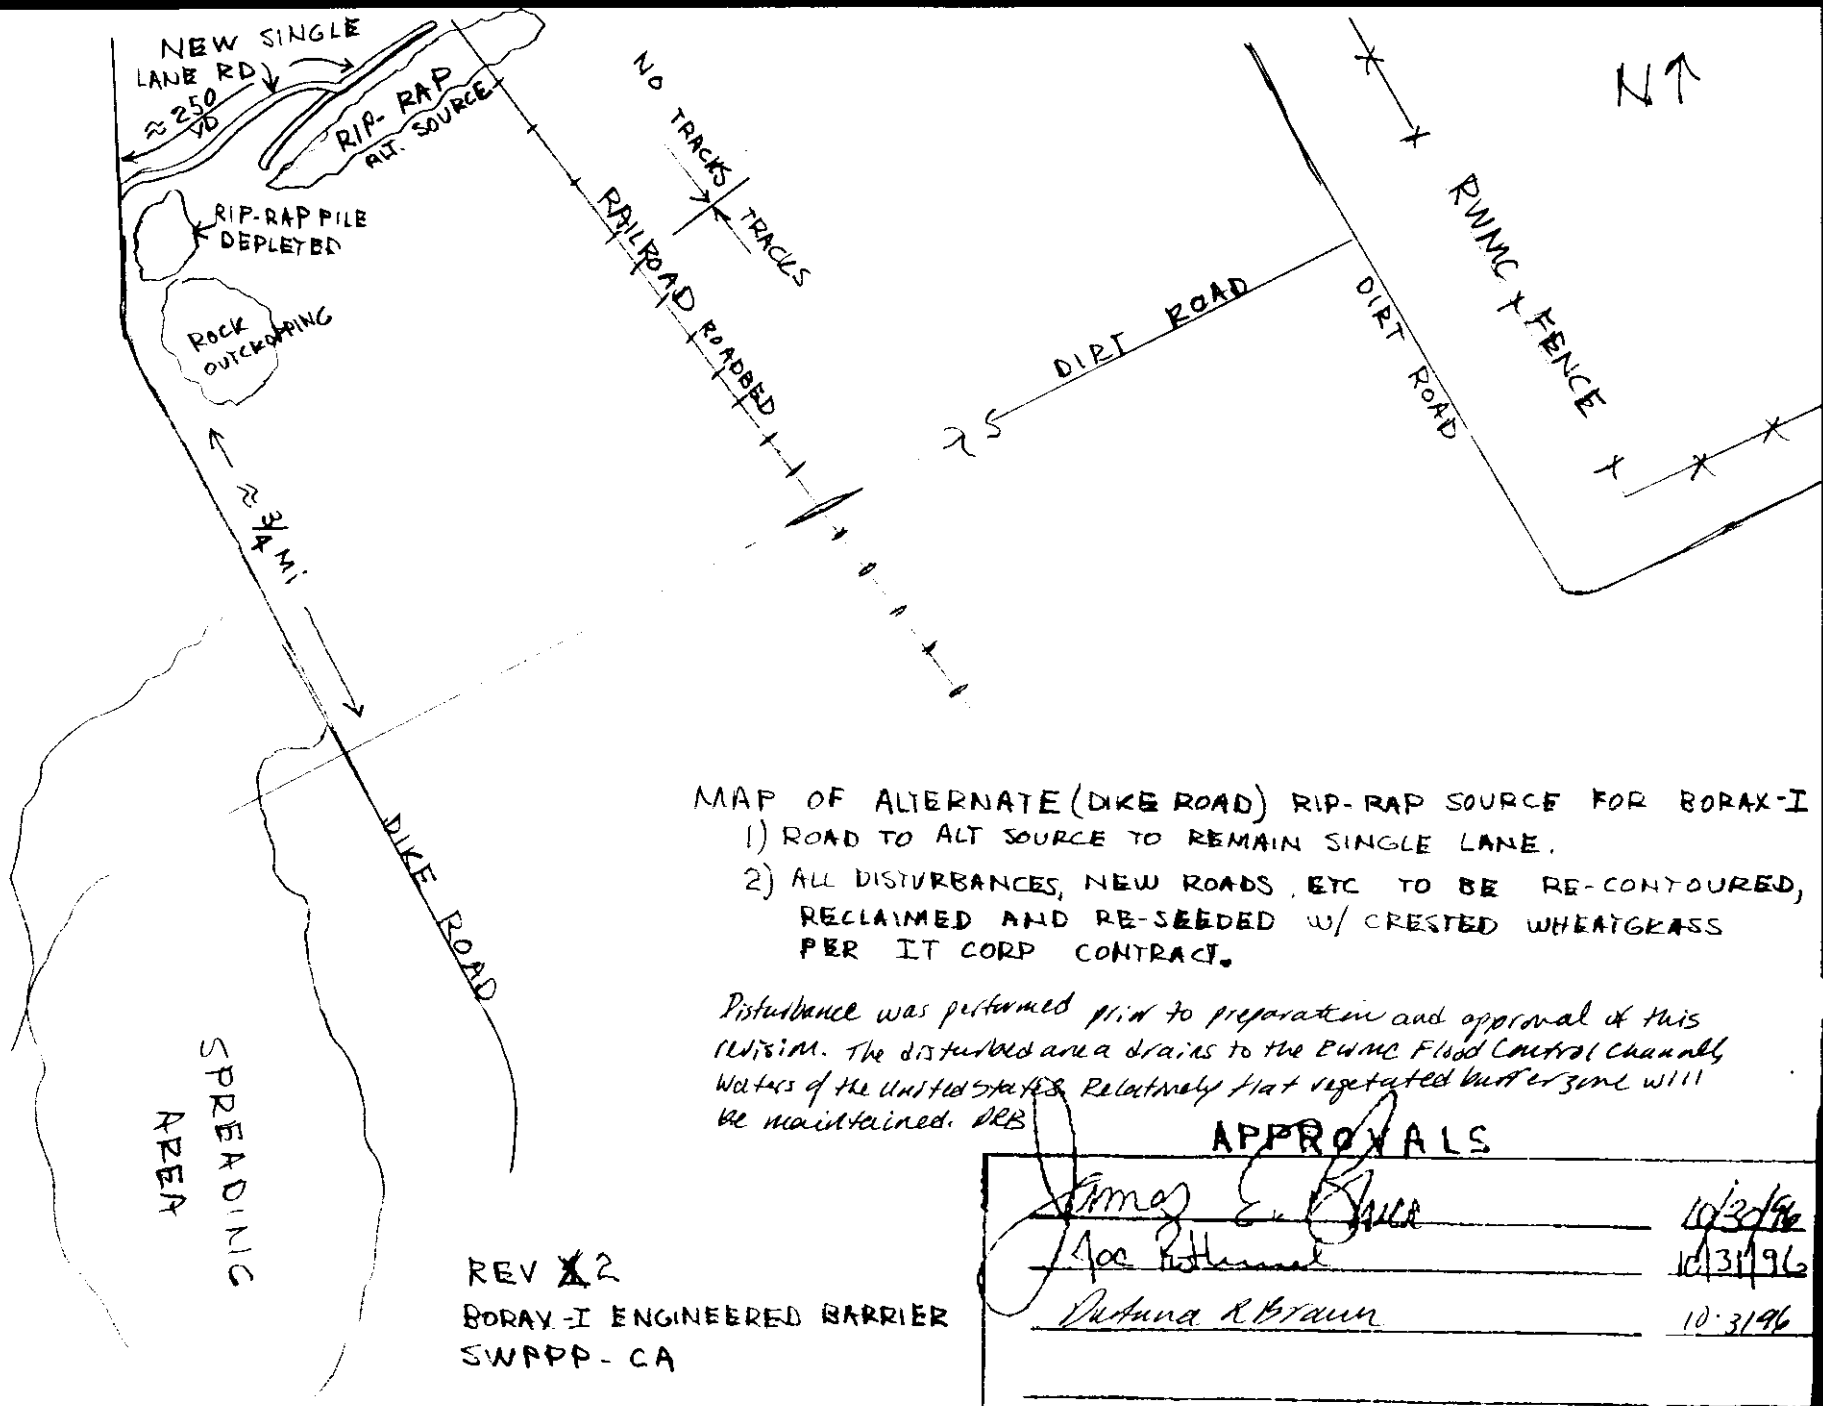 NEW SINGLE
LANE RD
≈ 250
YD
RIP-RAP
ALT. SOURCE
NO TRACKS
TRACKS
N↑
RIP-RAP PILE
DEPLETED
ROCK
OUTCROPPING
RAILROAD ROADBED
DIRT ROAD
DIRT ROAD
RWMC FENCE
≈ 3/4 Mi
DIKE ROAD
SPREADING
AREA
MAP OF ALTERNATE (DIKE ROAD) RIP-RAP SOURCE FOR BORAX-I
1) ROAD TO ALT SOURCE TO REMAIN SINGLE LANE.
2) ALL DISTURBANCES, NEW ROADS, ETC TO BE RE-CONTOURED,
RECLAIMED AND RE-SEEDED W/ CRESTED WHEATGRASS
PER IT CORP CONTRACT.
Disturbance was performed prior to preparation and approval of this
revision. The disturbed area drains to the RWMC Flood Control Channels
Waters of the United States. Relatively flat vegetated buffer zone will
be maintained. DRB
APPROVALS
James E. Bruce 10/30/96
Joe 10/31/96
R Braun 10-31-96
REV 2
BORAX-I ENGINEERED BARRIER
SWPPP-CA